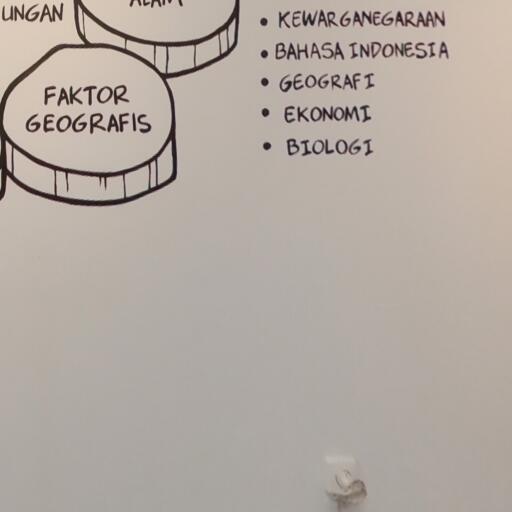 UNGAN
ALAM
FAKTOR
GEOGRAFIS
• KEWARGANEGARAAN
• BAHASA INDONESIA
• GEOGRAFI
• EKONOMI
• BIOLOGI